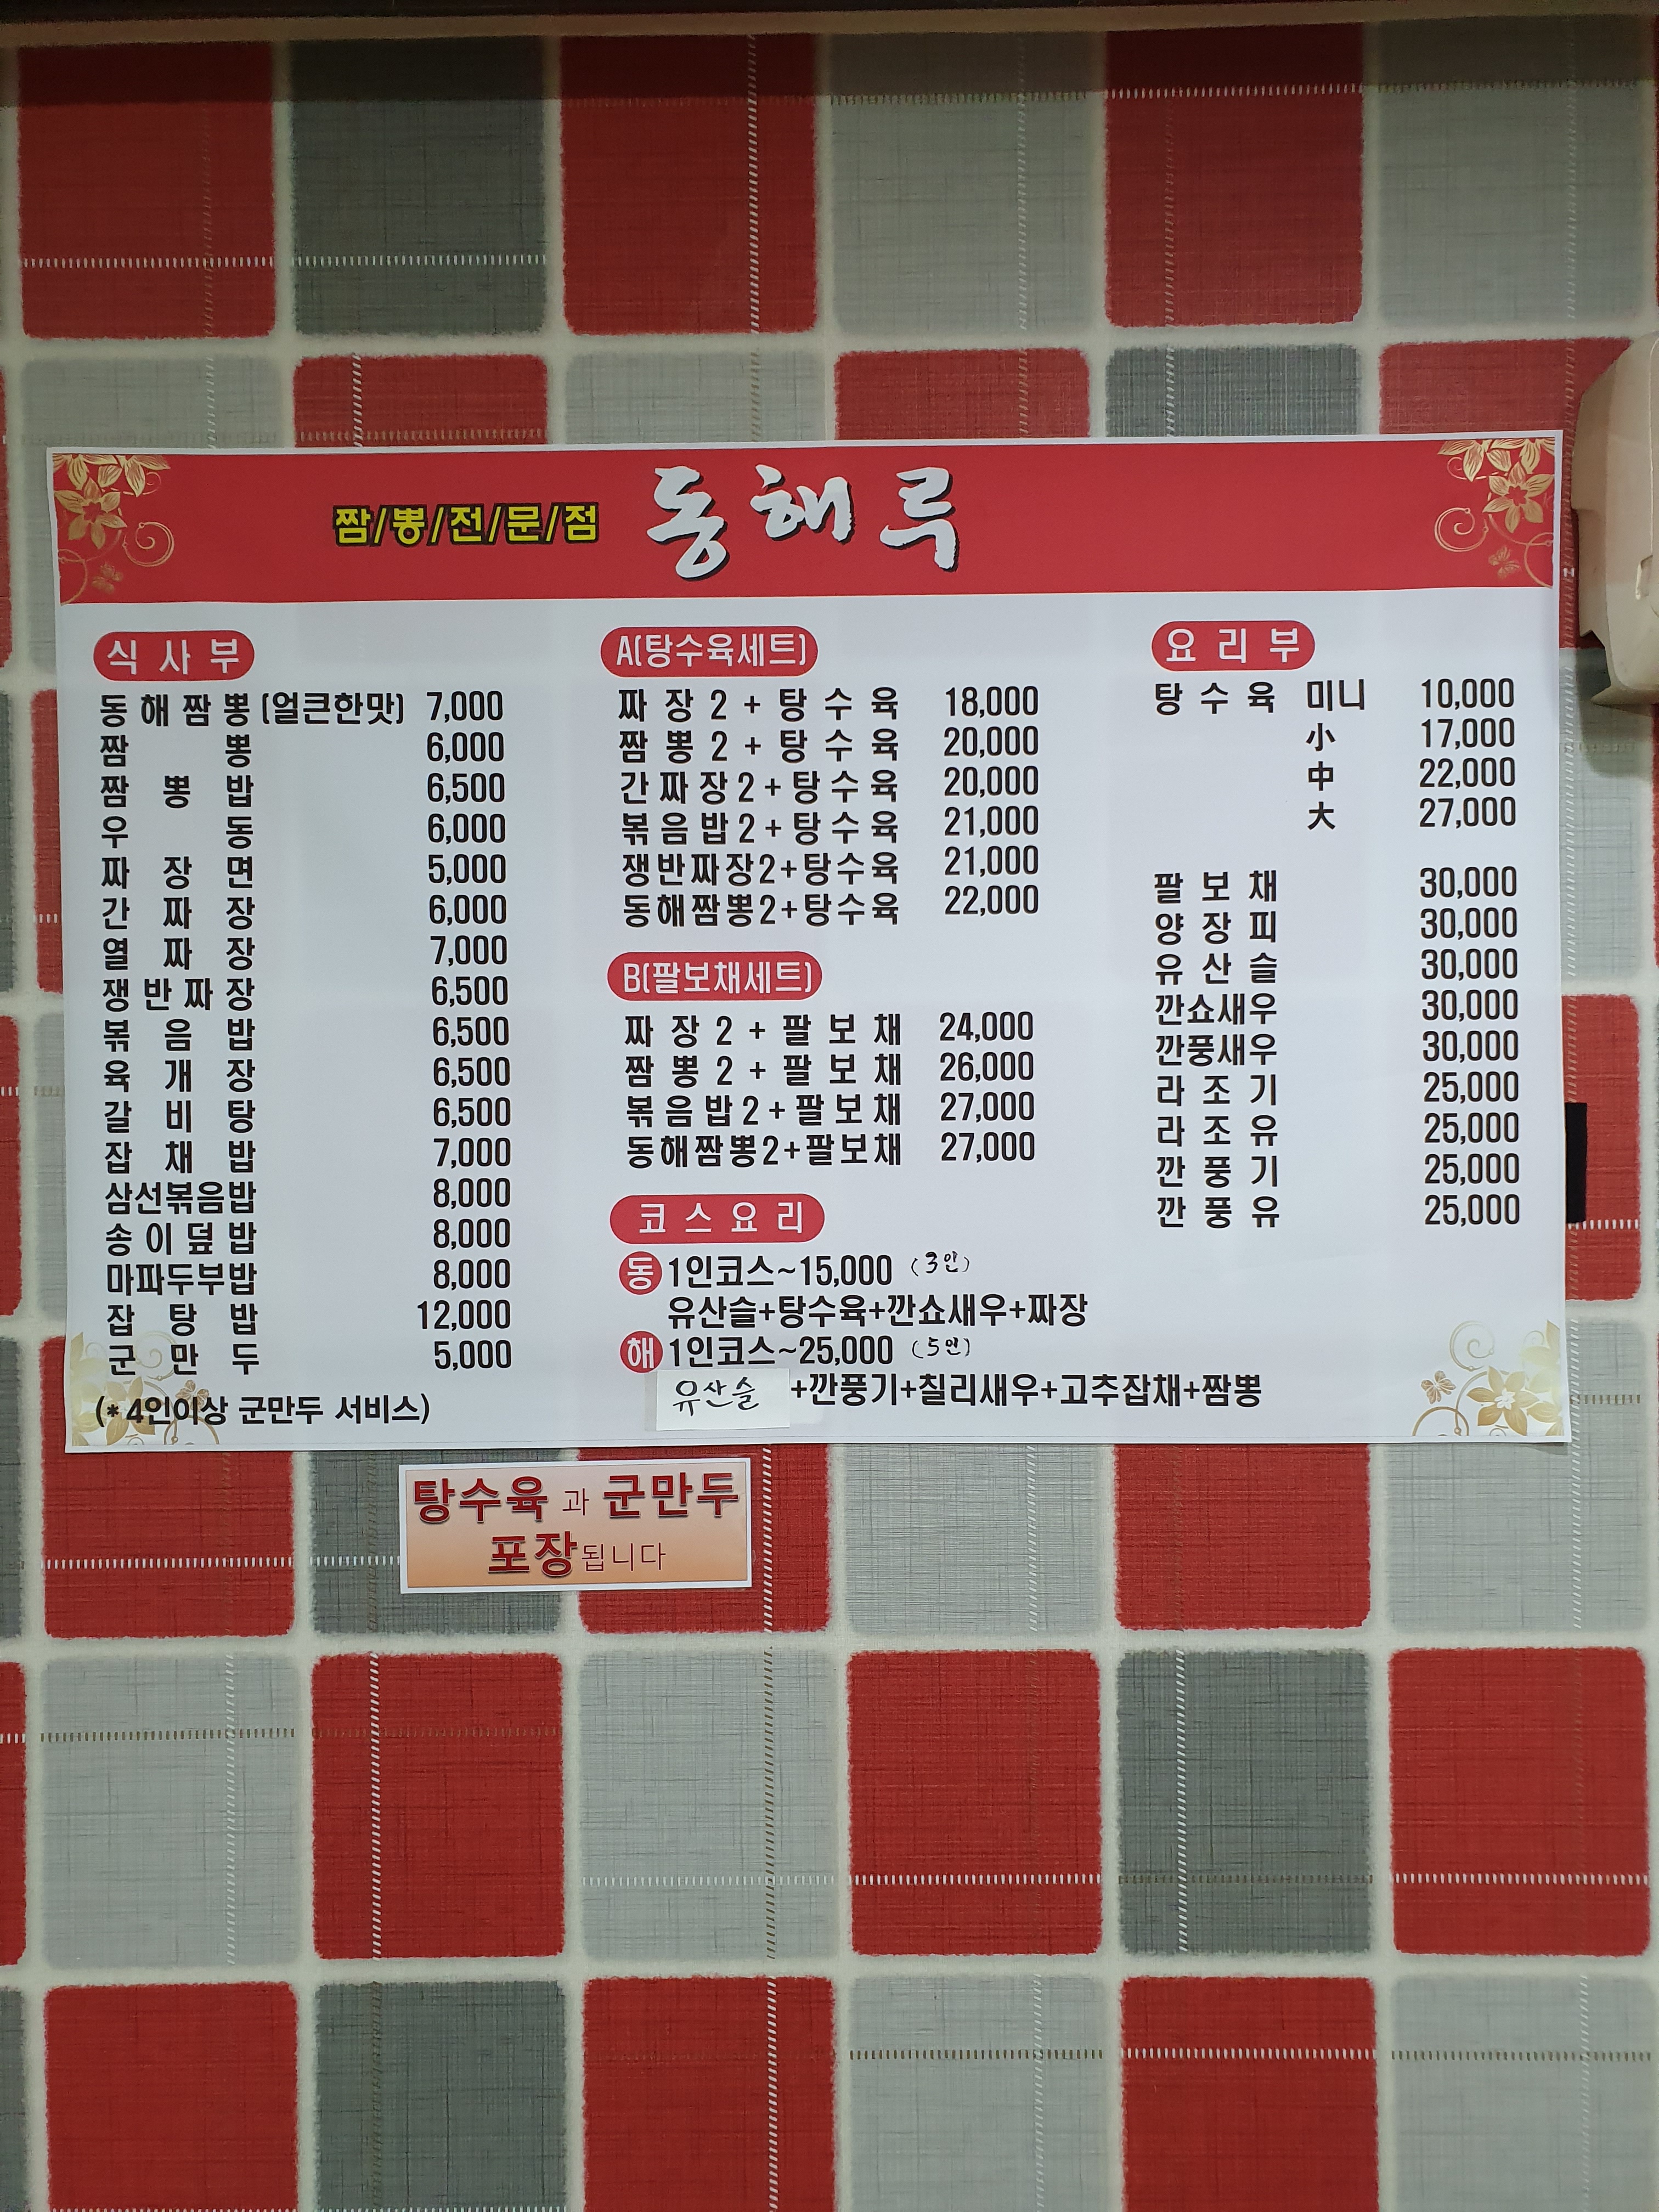 짬/뽕/전/문/점 동해루
식사부
동해짬뽕(얼큰한맛) 7,000
짬뽕 6,000
짬뽕밥 6,500
우동 6,000
짜장면 5,000
간짜장 6,000
열짜장 7,000
쟁반짜장 6,500
볶음밥 6,500
육개장 6,500
갈비탕 6,500
잡채밥 7,000
삼선볶음밥 8,000
송이덮밥 8,000
마파두부밥 8,000
잡탕밥 12,000
군만두 5,000
(*4인이상 군만두 서비스)
A(탕수육세트)
짜장2+탕수육 18,000
짬뽕2+탕수육 20,000
간짜장2+탕수육 20,000
볶음밥2+탕수육 21,000
쟁반짜장2+탕수육 21,000
동해짬뽕2+탕수육 22,000
B(팔보채세트)
짜장2+팔보채 24,000
짬뽕2+팔보채 26,000
볶음밥2+팔보채 27,000
동해짬뽕2+팔보채 27,000
코스요리
동 1인코스~15,000 (3인)
유산슬+탕수육+깐쇼새우+짜장
해 1인코스~25,000 (5인)
유산슬+깐풍기+칠리새우+고추잡채+짬뽕
요리부
탕수육 미니 10,000
小 17,000
中 22,000
大 27,000
팔보채 30,000
양장피 30,000
유산슬 30,000
깐쇼새우 30,000
깐풍새우 30,000
라조기 25,000
라조유 25,000
깐풍기 25,000
깐풍유 25,000
탕수육과 군만두
포장됩니다